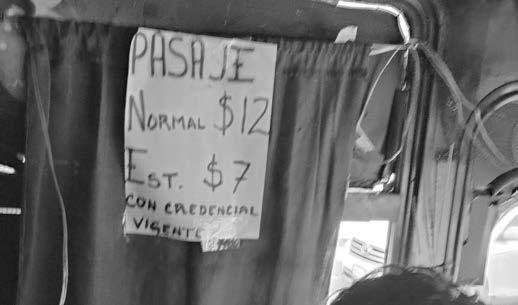 PASAJE
NORMAL $12
EST. $7
CON CREDENCIAL
VIGENTE